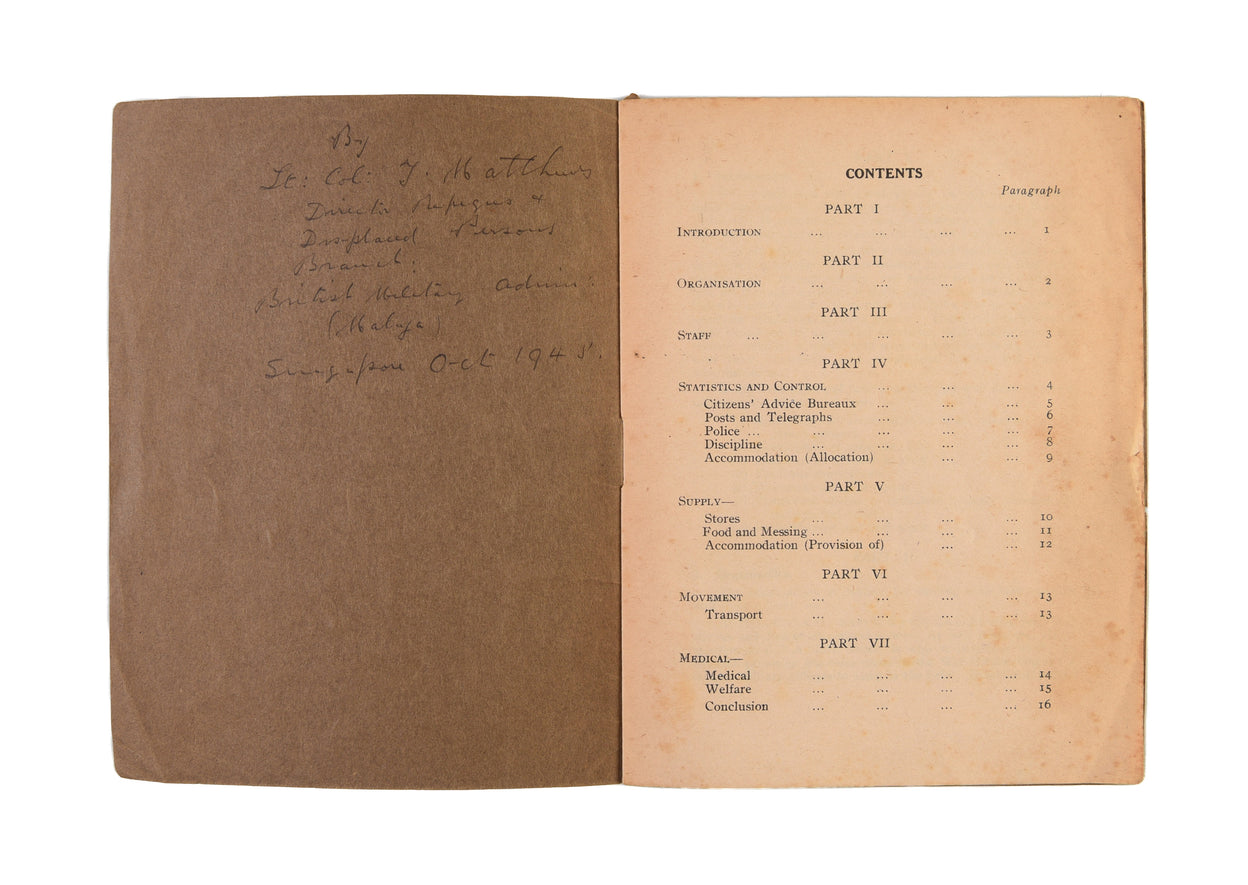 By
Lt: Col: J. Matthews
Director Refugees &
Displaced Persons
Branch:
British Military Admin:
(Malaya)
Singapore Oct 1945.
CONTENTS
Paragraph
PART I
INTRODUCTION ... ... ... ... 1
PART II
ORGANISATION ... ... ... ... 2
PART III
STAFF ... ... ... ... ... 3
PART IV
STATISTICS AND CONTROL ... ... ... 4
Citizens' Advice Bureaux ... ... ... 5
Posts and Telegraphs ... ... ... 6
Police ... ... ... ... ... 7
Discipline ... ... ... ... 8
Accommodation (Allocation) ... ... 9
PART V
SUPPLY—
Stores ... ... ... ... 10
Food and Messing ... ... ... ... 11
Accommodation (Provision of) ... ... 12
PART VI
MOVEMENT ... ... ... ... 13
Transport ... ... ... ... 13
PART VII
MEDICAL—
Medical ... ... ... ... 14
Welfare ... ... ... ... 15
Conclusion ... ... ... ... 16